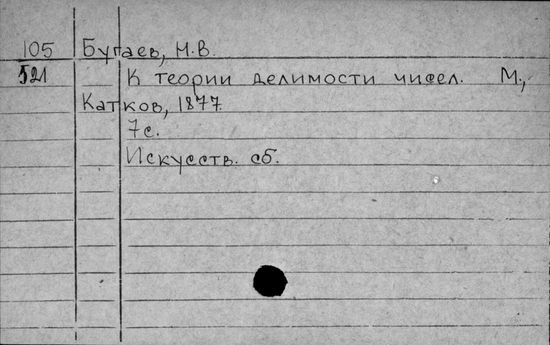 105 Бугаев, Н.В.
521 К теории делимости чисел. М.,
Катков, 1877.
7с.
Искусств. сб.